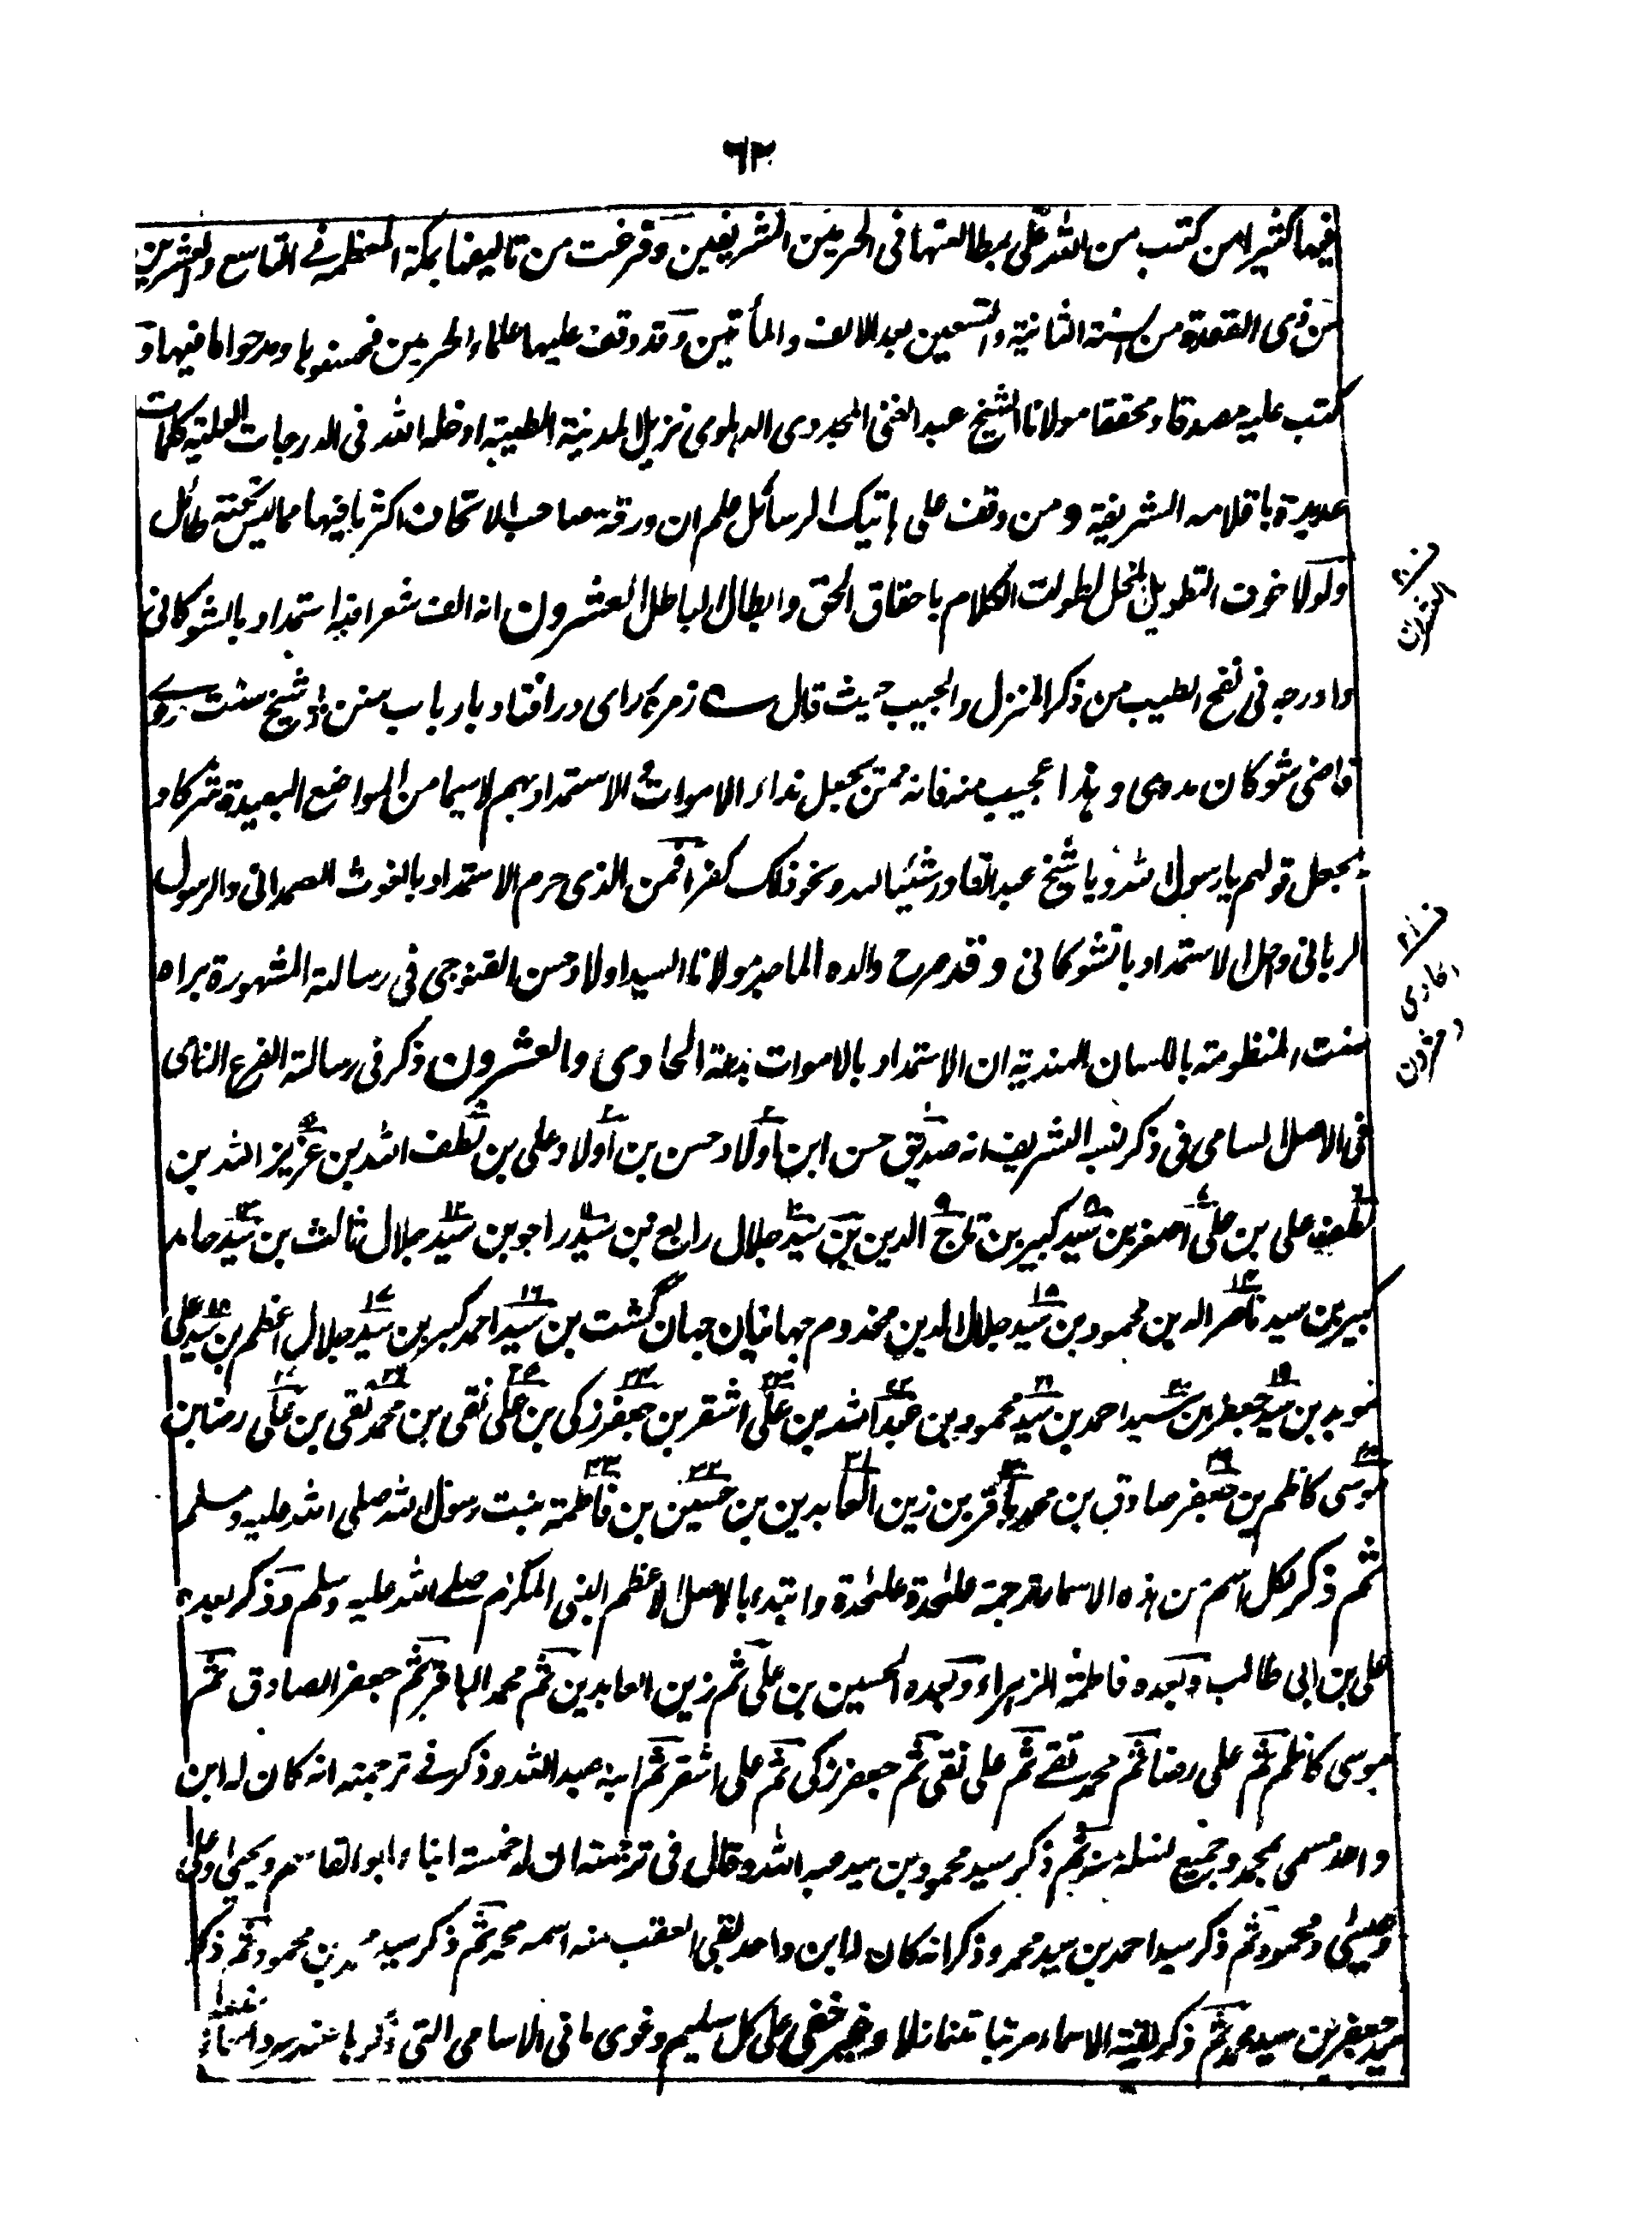 ٦٢
فيها كثيرا من كتب من الله علي بمطالعتها فى الحرمين الشريفين وفرغت من تاليفها بمكة المعظمة فى التاسع والعشرين
من ذى القعدة من السنة الثانية والتسعين بعد الالف والمأتين وقد وقف عليها علماء الحرمين فحسنوها ومدحوا ما فيها و
كتب عليه مصدقا ومحققا مولانا الشيخ عبد الغنى المجددى الدهلوى نزيل المدينة الطيبة ادخله الله فى الدرجات العلية كلمات
عديدة باقلامه الشريفة ومن وقف على هاتيك الرسائل علم ان ورقة صاحب الاتحاف اكثر ما فيها مما ليس تحته طائل
ولولا خوف التطويل المخل لطولت الكلام باحقاق الحق وابطال الباطل العشرون انه الف شعرا فيه استمداد بالشوكانى
وادرجه فى نفح الطيب من ذكر المنزل والحبيب حيث قال ؎ زمرهٔ راى در افتاد بارباب سنن * شيخ سنت مددى
قاضى شوكان مددى وهذا عجيب منه فانه ممن يجعل نداء الاموات والاستمداد بهم لا سيما من المواضع البعيدة شركا و
يجعل قولهم يا رسول الله ويا شيخ عبد القادر شيئا لله ونحو ذلك كفرا فمن الذى حرم الاستمداد بالغوث الصمدانى والرسول
الربانى واحل الاستمداد بالشوكانى وقد صرح والده الماجد مولانا السيد اولاد حسن القنوجى فى رسالته المشهورة براه
سنت المنظومة باللسان الهندية ان الاستمداد بالاموات بدعة الحادى والعشرون ذكر فى رسالته الفرع النامى
فى الاصل السامى فى ذكر نسبه الشريف انه صديق حسن ابن اولاد حسن بن اولاد على بن لطف الله بن عزيز الله بن
لطف على بن على اصغر بن سيد كبير بن تاج الدين بن سيد جلال رابع بن سيد راجو بن سيد جلال ثالث بن سيد حامد
كبير بن سيد ناصر الدين محمود بن سيد جلال الدين مخدوم جهانيان جهان گشت بن سيد احمد كبير بن سيد جلال اعظم بن سيد على
مويد بن سيد جعفر بن سيد احمد بن سيد محمود بن عبد الله بن على اشقر بن جعفر زكى بن على نقى بن محمد تقى بن على رضا بن
موسى كاظم بن جعفر صادق بن محمد باقر بن زين العابدين بن حسين بن فاطمة بنت رسول الله صلى الله عليه وسلم
ثم ذكر لكل اسم من هذه الاسماء ترجمة علىٰحدة علىٰحدة وابتدء بالاصل الاعظم النبى المكرم صلے الله عليه وسلم وذكر بعده
على بن ابى طالب وبعده فاطمة الزهراء وبعده الحسين بن على ثم زين العابدين ثم محمد الباقر ثم جعفر الصادق ثم
موسى كاظم ثم على رضا ثم محمد تقے ثم على نقى ثم جعفر زكى ثم على اشقر ثم ابنه عبد الله وذكر فى ترجمته انه كان له ابن
واحد مسمى بمحمد وجميع نسله منه ثم ذكر سيد محمود بن سيد عبد الله وقال فى ترجمته ان له خمسة ابناء ابو القاسم ويحيى وعلى
وعيسى ومحمود ثم ذكر سيد احمد بن سيد محمد وذكر انه كان له ابن واحد بقى العقب منه اسمه محمد ثم ذكر سيد محمد بن محمود ثم ذكر
سيد جعفر بن سيد محمد ثم ذكر بقية الاسماء مرتبا متنازلا وغير خفى على كل سليم دعوى ما فى الاسامى التى ذكرها عند سرد اسماء
العشرون
الحادى
والعشرون